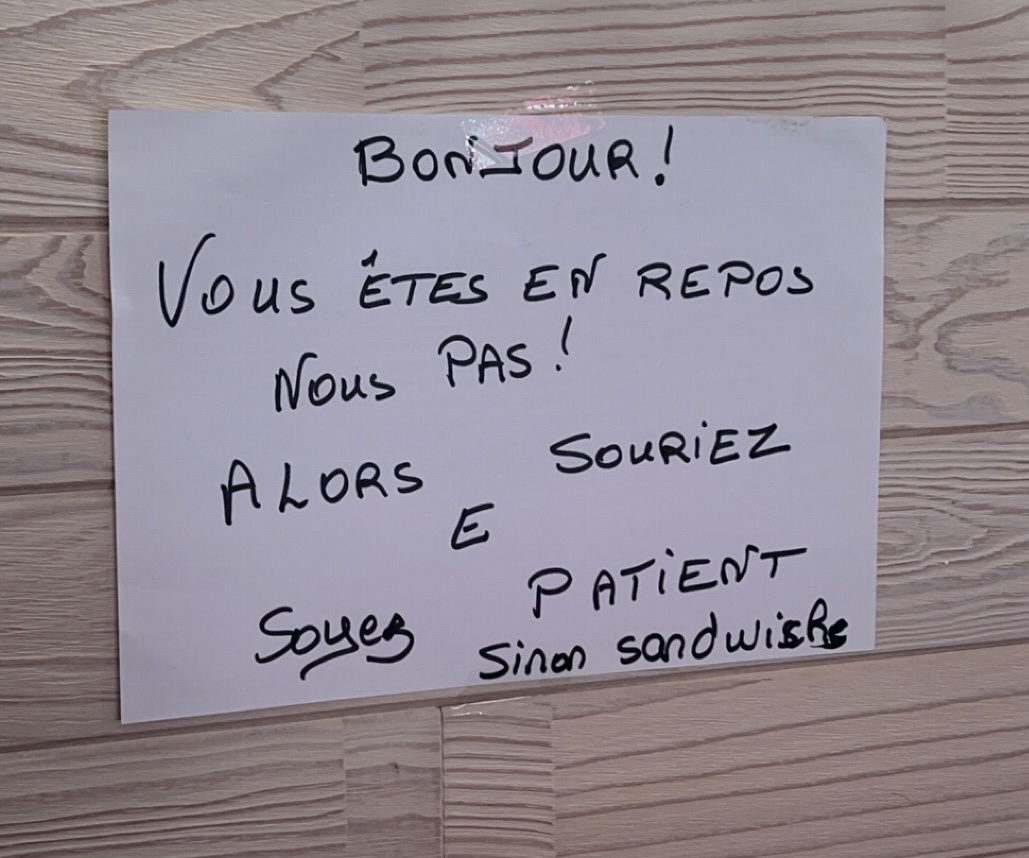 BONJOUR!
VOUS ÊTES EN REPOS
NOUS PAS!
ALORS SOURIEZ
E
SOYEZ PATIENT
Sinon sandwishs